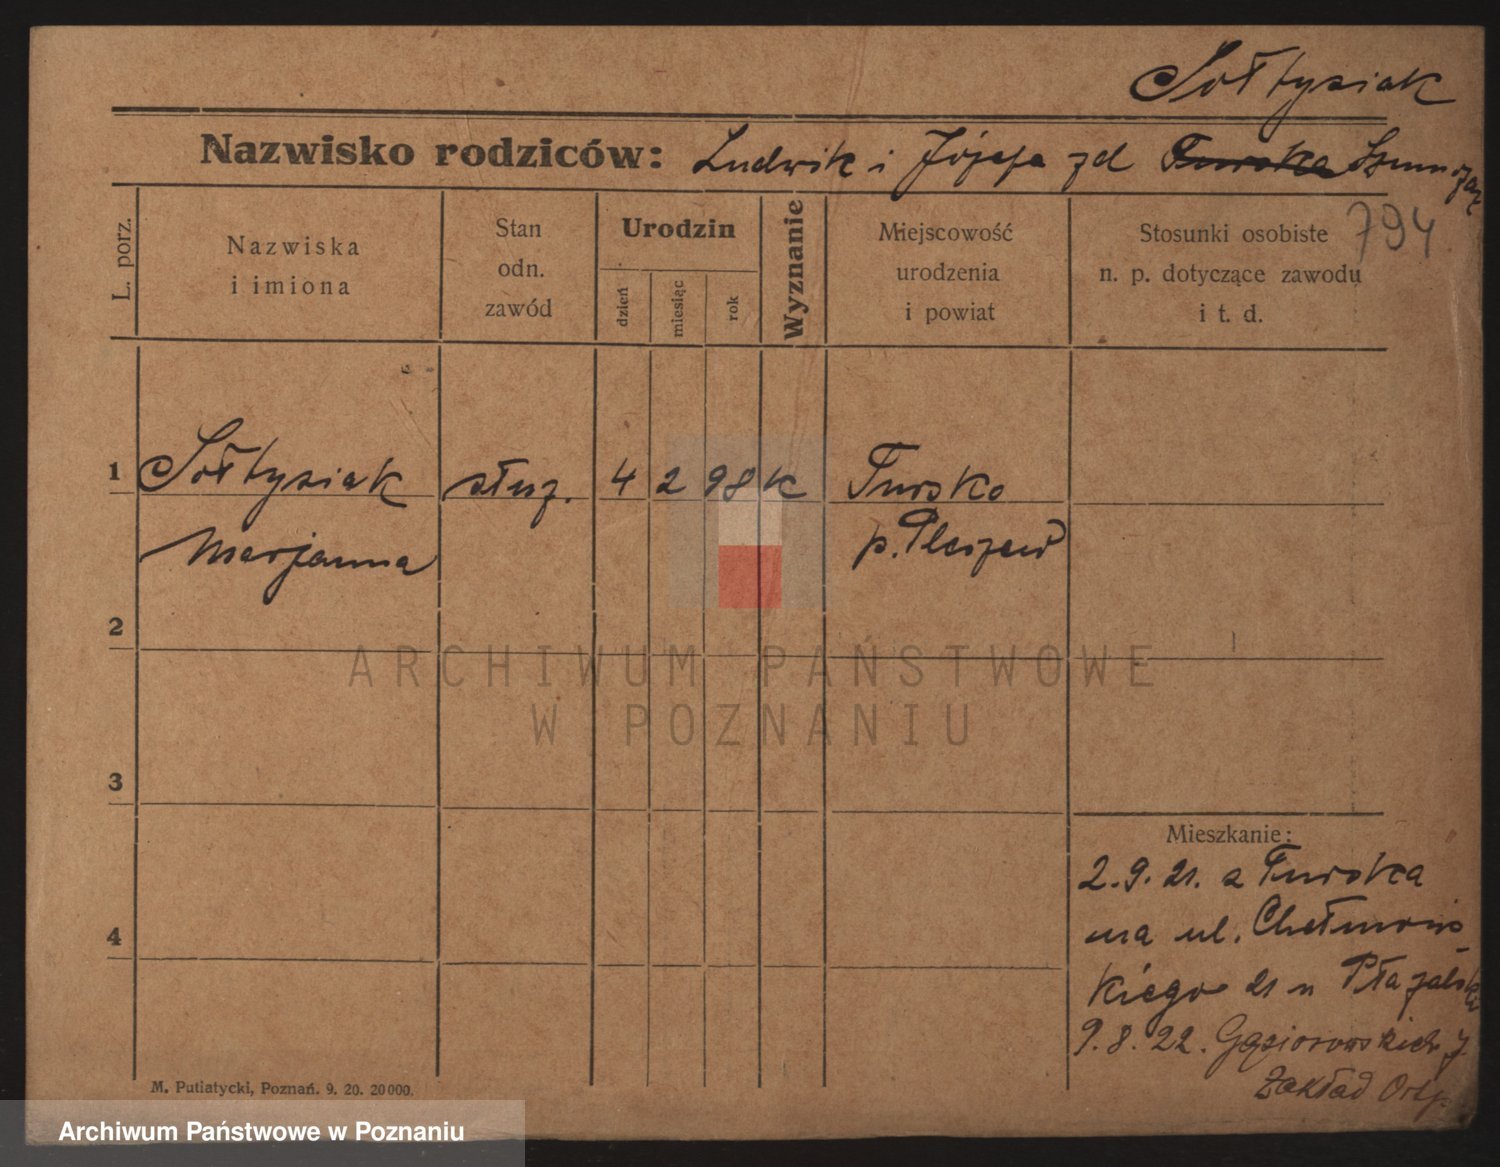 Sołtysiak
Nazwisko rodziców: Ludwik i Józefa zd Turska
794
L. porz.
Nazwiska
i imiona
Stan
odn.
zawód
Urodzin
dzień
miesiąc
rok
Wyznanie
Miejscowość
urodzenia
i powiat
Stosunki osobiste
n. p. dotyczące zawodu
i t. d.
1 Sołtysiak służ. 4 2 98 k Tursko
Marjanna p. Pleszew
2
3
4
Mieszkanie:
2.9.21. z Turska
na ul. Chełmoń-
kiego 21 u
9.8.22. Gąsiorowskich
Zakład Ortp.
M. Putiatycki, Poznań. 9. 20. 20000.
ARCHIWUM PAŃSTWOWE
W POZNANIU
Archiwum Państwowe w Poznaniu